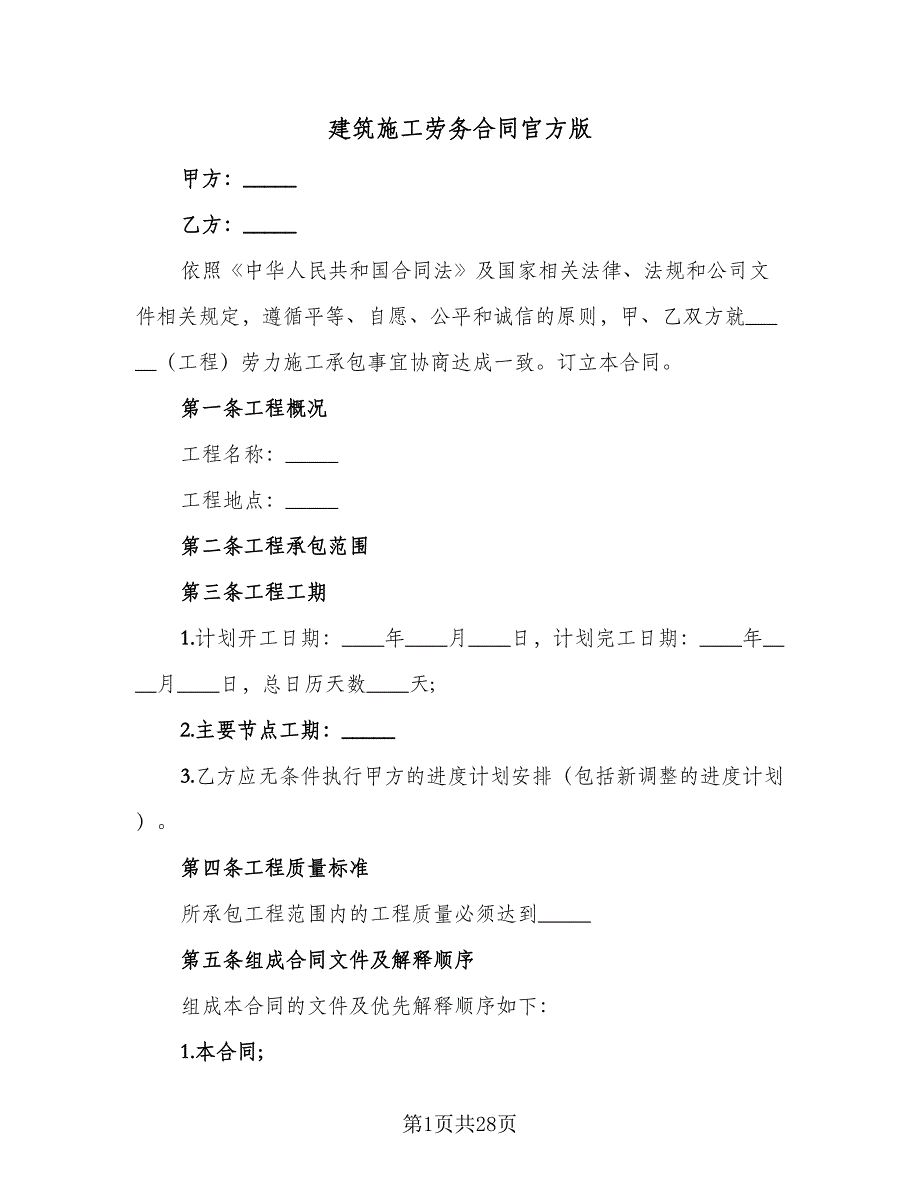 建筑施工劳务合同官方版
甲方：_____
乙方：_____
依照《中华人民共和国合同法》及国家相关法律、法规和公司文
件相关规定，遵循平等、自愿、公平和诚信的原则，甲、乙双方就___
__（工程）劳力施工承包事宜协商达成一致。订立本合同。
第一条工程概况
工程名称：_____
工程地点：_____
第二条工程承包范围
第三条工程工期
1.计划开工日期：____年____月____日，计划完工日期：____年__
__月____日，总日历天数____天;
2.主要节点工期：_____
3.乙方应无条件执行甲方的进度计划安排（包括新调整的进度计划
）。
第四条工程质量标准
所承包工程范围内的工程质量必须达到_____
第五条组成合同文件及解释顺序
组成本合同的文件及优先解释顺序如下：
1.本合同;
第1页共28页